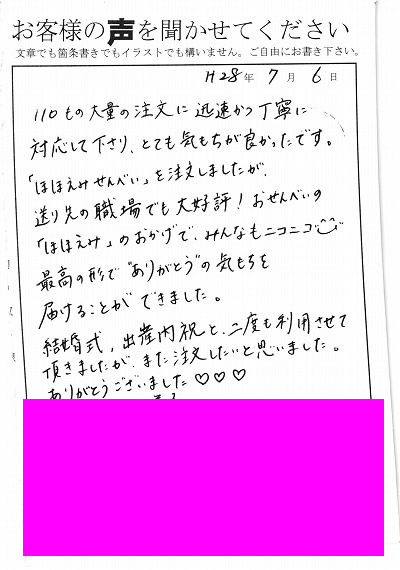 お客様の声を聞かせてください
文章でも箇条書きでもイラストでも構いません。ご自由にお書き下さい。
H28年 7月 6日
110もの大量の注文に迅速かつ丁寧に
対応して下さり、とても気もちが良かったです。
「ほほえみせんべい」を注文しましたが、
送り先の職場でも大好評！おせんべいの
「ほほえみ」のおかげで、みんなもニコニコ
最高の形で"ありがとう"の気もちを
届けることができました。
結婚式、出産内祝と、二度も利用させて
頂きましたが、また注文したいと思いました。
ありがとうございました♡♡♡